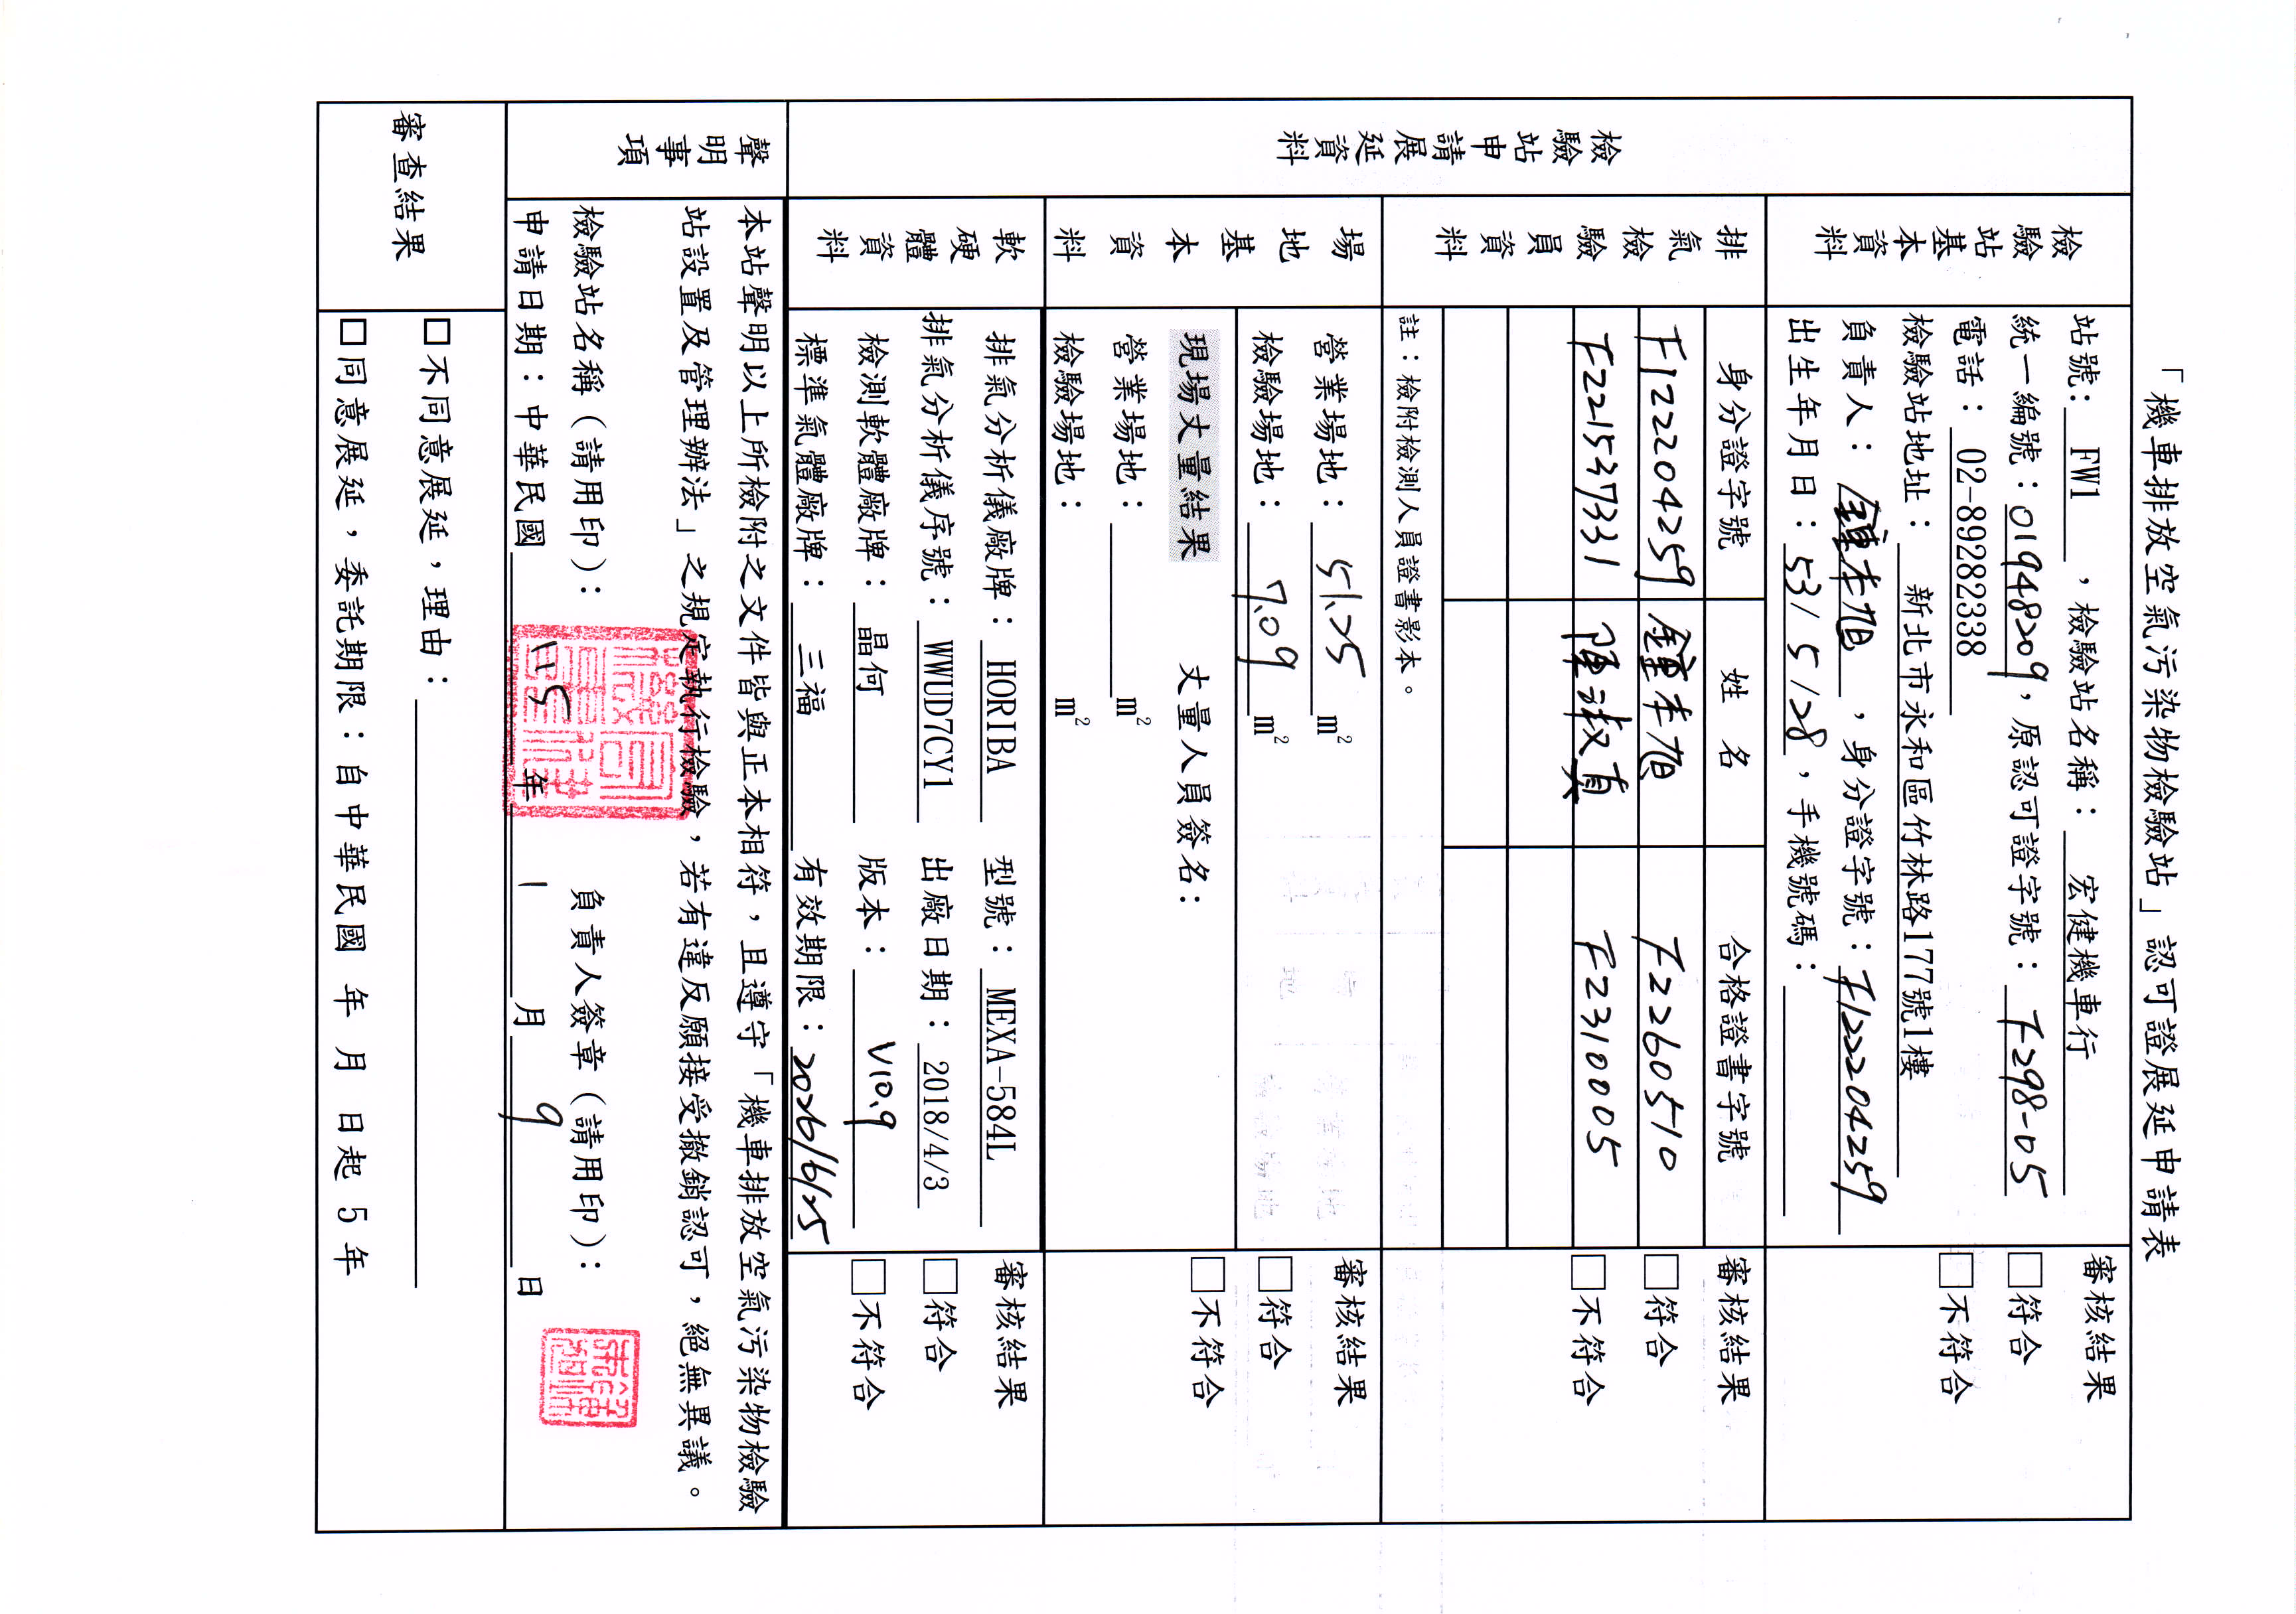 「機車排放空氣污染物檢驗站」認可證展延申請表
檢驗站申請展延資料
檢驗站基本資料
站號： FW1 ，檢驗站名稱： 宏健機車行
統一編號：01948209，原認可證字號： F298-05
電話： 02-89282338
檢驗站地址： 新北市永和區竹林路177號1樓
負責人： 鍾孝旭 ，身分證字號：F122204259
出生年月日：53/5/28，手機號碼：
審核結果
□符合
□不符合
排氣檢驗員資料
身分證字號 姓名 合格證書字號
F122204259 鍾孝旭 F2260510
F221537331 陳淑真 F2310005
註：檢附檢測人員證書影本。
審核結果
□符合
□不符合
場地基本資料
營業場地： 51.25 m²
檢驗場地： 7.09 m²
現場丈量結果 丈量人員簽名：
營業場地： m²
檢驗場地： m²
審核結果
□符合
□不符合
軟硬體資料
排氣分析儀廠牌： HORIBA 型號： MEXA-584L
排氣分析儀序號： WWUD7CY1 出廠日期： 2018/4/3
檢測軟體廠牌： 晶何 版本： V10.9
標準氣體廠牌： 三福 有效期限：2026/6/25
審核結果
□符合
□不符合
聲明事項
本站聲明以上所檢附之文件皆與正本相符，且遵守「機車排放空氣污染物檢驗
站設置及管理辦法」之規定執行檢驗，若有違反願接受撤銷認可，絕無異議。
檢驗站名稱（請用印）： 負責人簽章（請用印）：
申請日期：中華民國 115 年 1 月 9 日
審查結果
□不同意展延，理由：
□同意展延，委託期限：自中華民國 年 月 日起 5 年